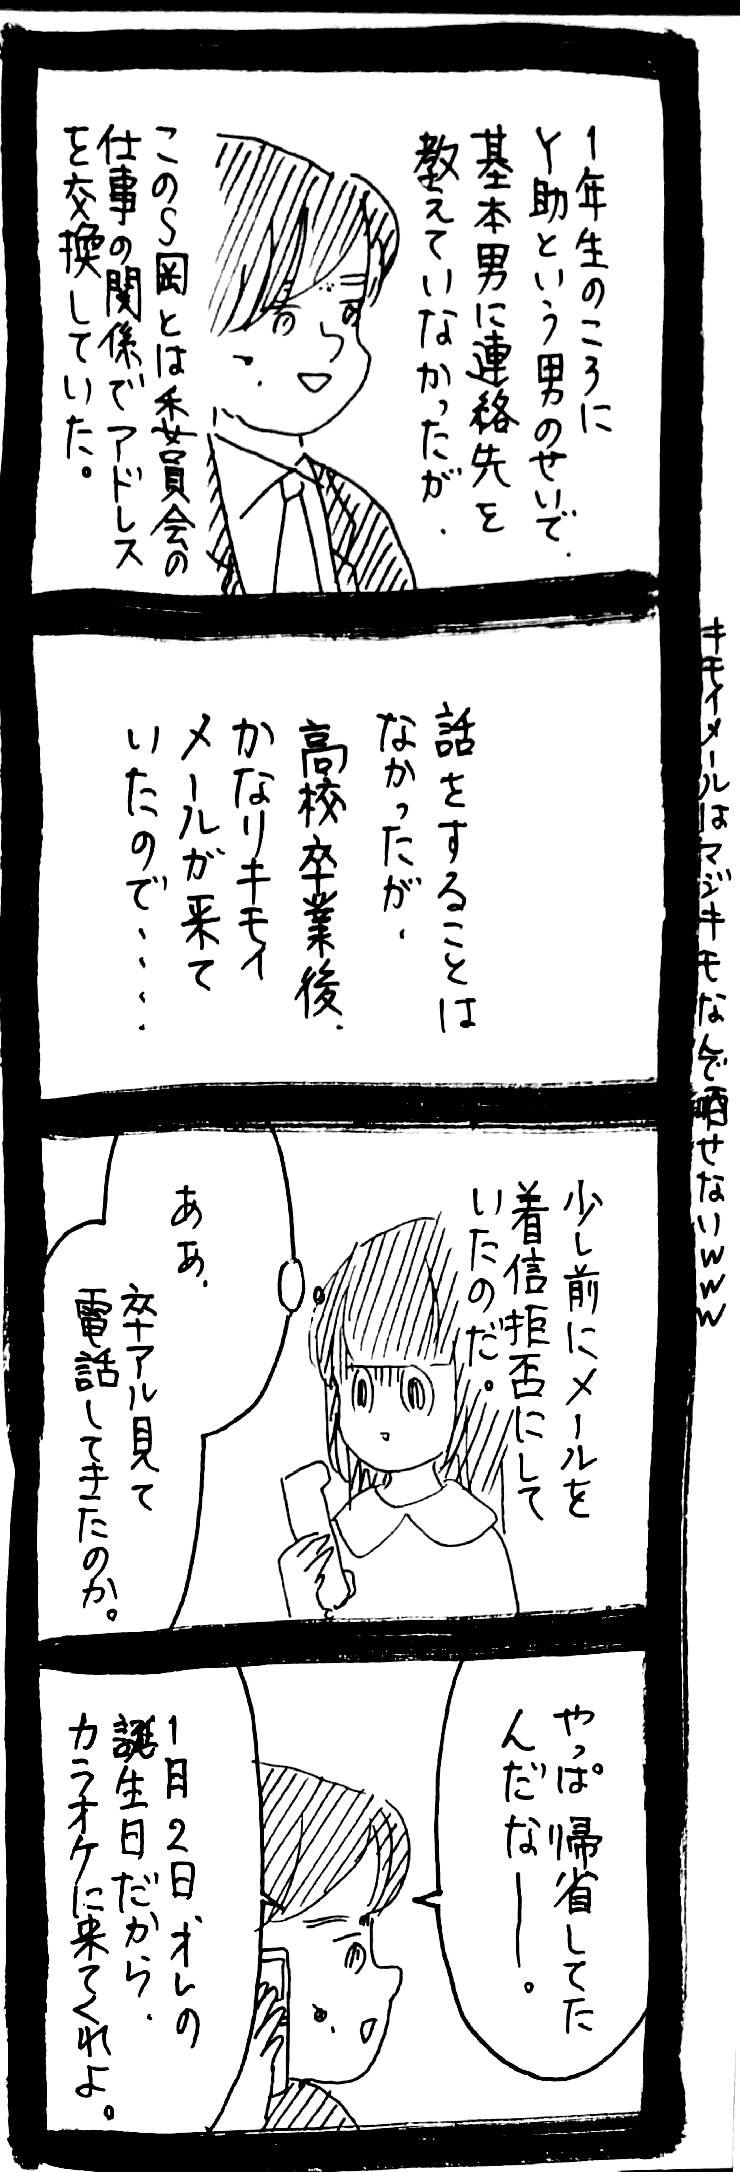 1年生のころに
Y助という男のせいで、
基本男に連絡先を
教えていなかったが、
このS岡とは委員会の
仕事の関係でアドレス
を交換していた。
キモイメールはマジキモなんで晒せないwww
話をすることは
なかったが、
高校卒業後、
かなりキモイ
メールが来て
いたので、、、、
少し前にメールを
着信拒否にして
いたのだ。
ああ、
卒アル見て
電話してきたのか。
やっぱ帰省してた
んだなー。
1月2日オレの
誕生日だから、
カラオケに来てくれよ。